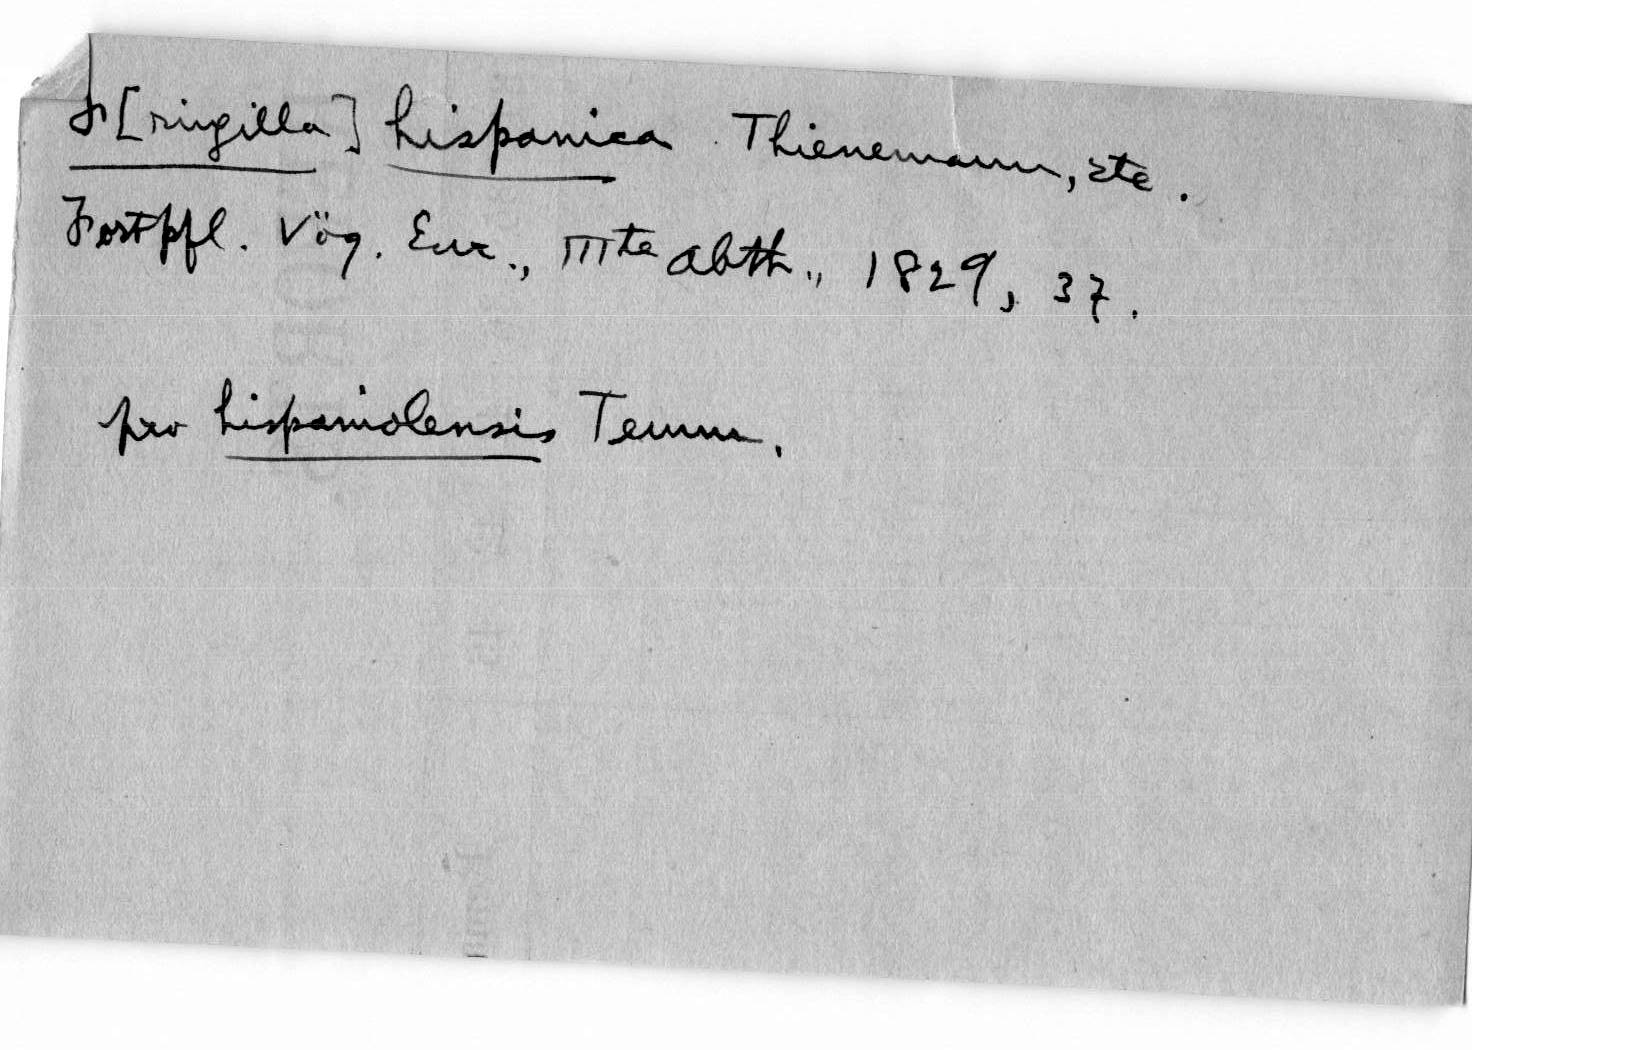 F[ringilla] hispanica Thienemann, etc.
Fortpfl. Vög. Eur., IIIte Abth., 1829, 37.
pro hispaniolensis Temm.